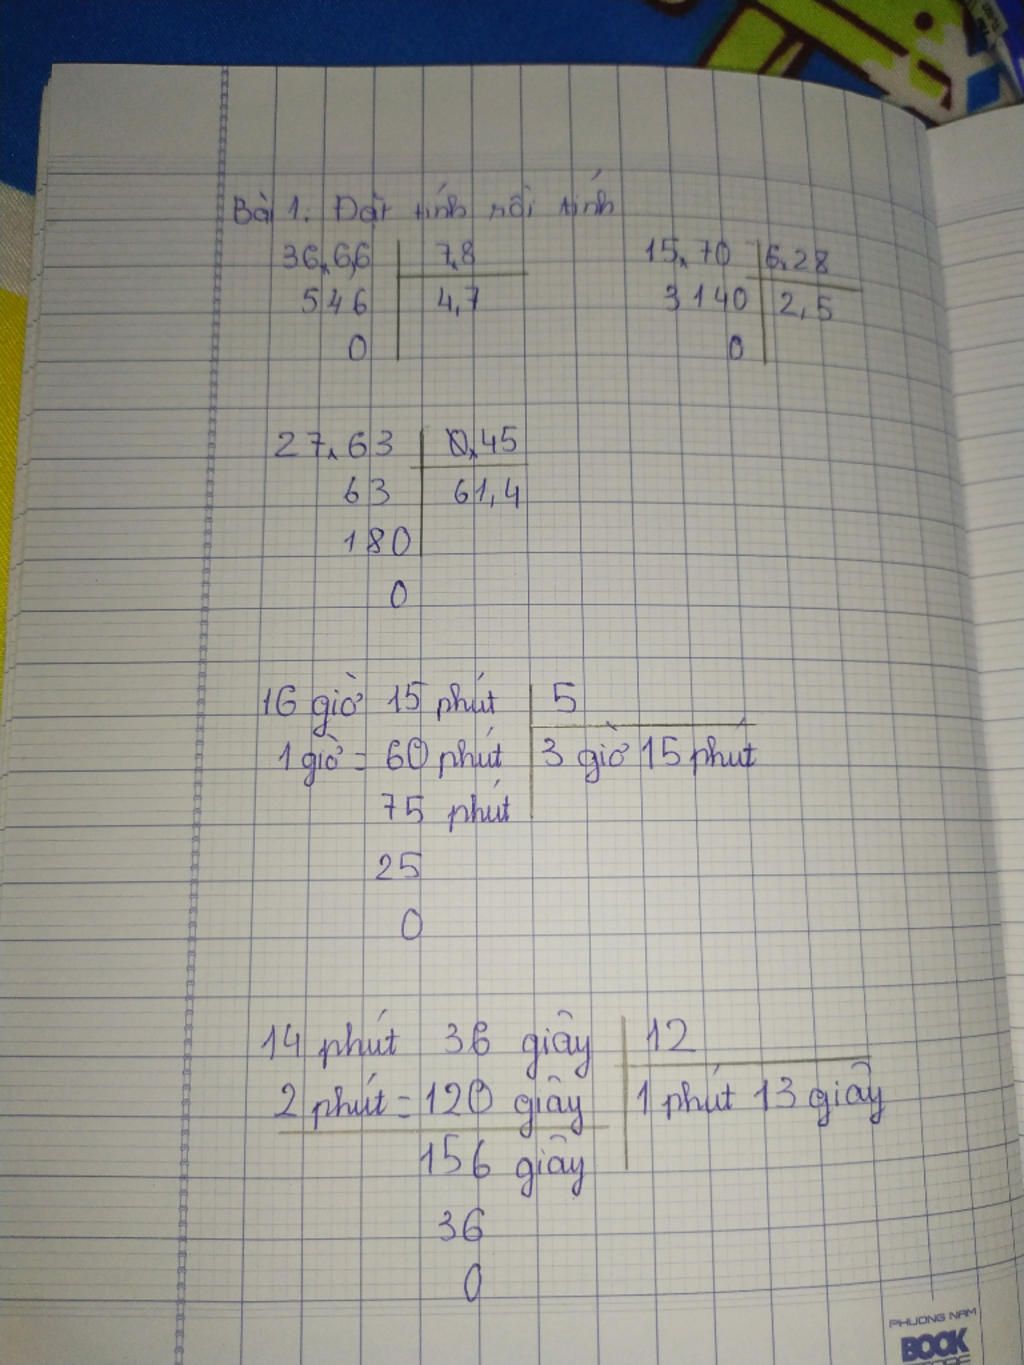 Bài 1. Đặt tính rồi tính
36,6,6 7,8
546 4,7
0
15,70 6,28
3140 2,5
0
27,63 0,45
63 61,4
180
0
16 giờ 15 phút 5
1 giờ = 60 phút 3 giờ 15 phút
75 phút
25
0
14 phút 36 giây 12
2 phút = 120 giây 1 phút 13 giây
156 giây
36
0
PHUONG NAM
BOOK